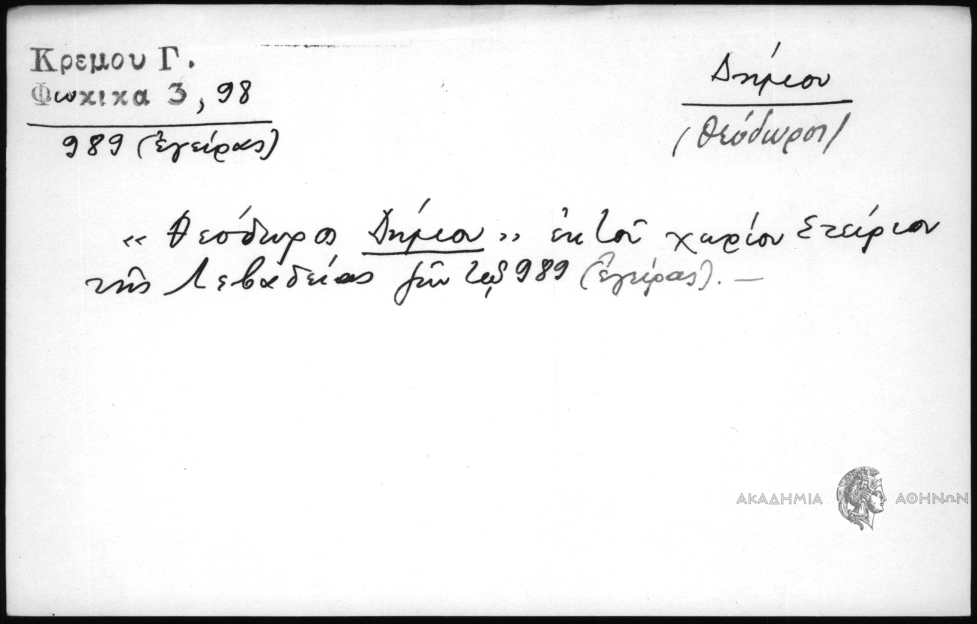 Κρεμου Γ.
Φωκικα 3, 98
989 (Ἐγείρας)
Δημίου
(Θεόδωρος)
« Θεόδωρος Δημίου » ἐκ τοῦ χωρίου Στείριου
τῆς Λεβαδείας ζῶν τῷ 989 (Ἐγείρας). —
ΑΚΑΔΗΜΙΑ ΑΘΗΝΩΝ